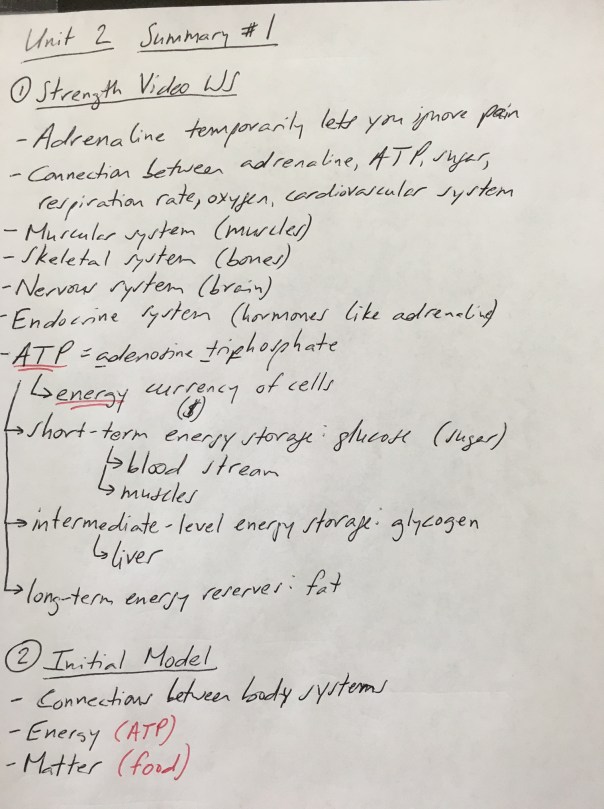 Unit 2 Summary #1
① Strength Video WS
- Adrenaline temporarily lets you ignore pain
- Connection between adrenaline, ATP, sugar,
respiration rate, oxygen, cardiovascular system
- Muscular system (muscles)
- Skeletal system (bones)
- Nervous system (brain)
- Endocrine system (hormones like adrenaline)
- ATP = adenosine triphosphate
↳ energy currency of cells
($)
→ short-term energy storage: glucose (sugar)
↳ blood stream
↳ muscles
→ intermediate-level energy storage: glycogen
↳ liver
→ long-term energy reserves: fat
② Initial Model
- Connections between body systems
- Energy (ATP)
- Matter (food)